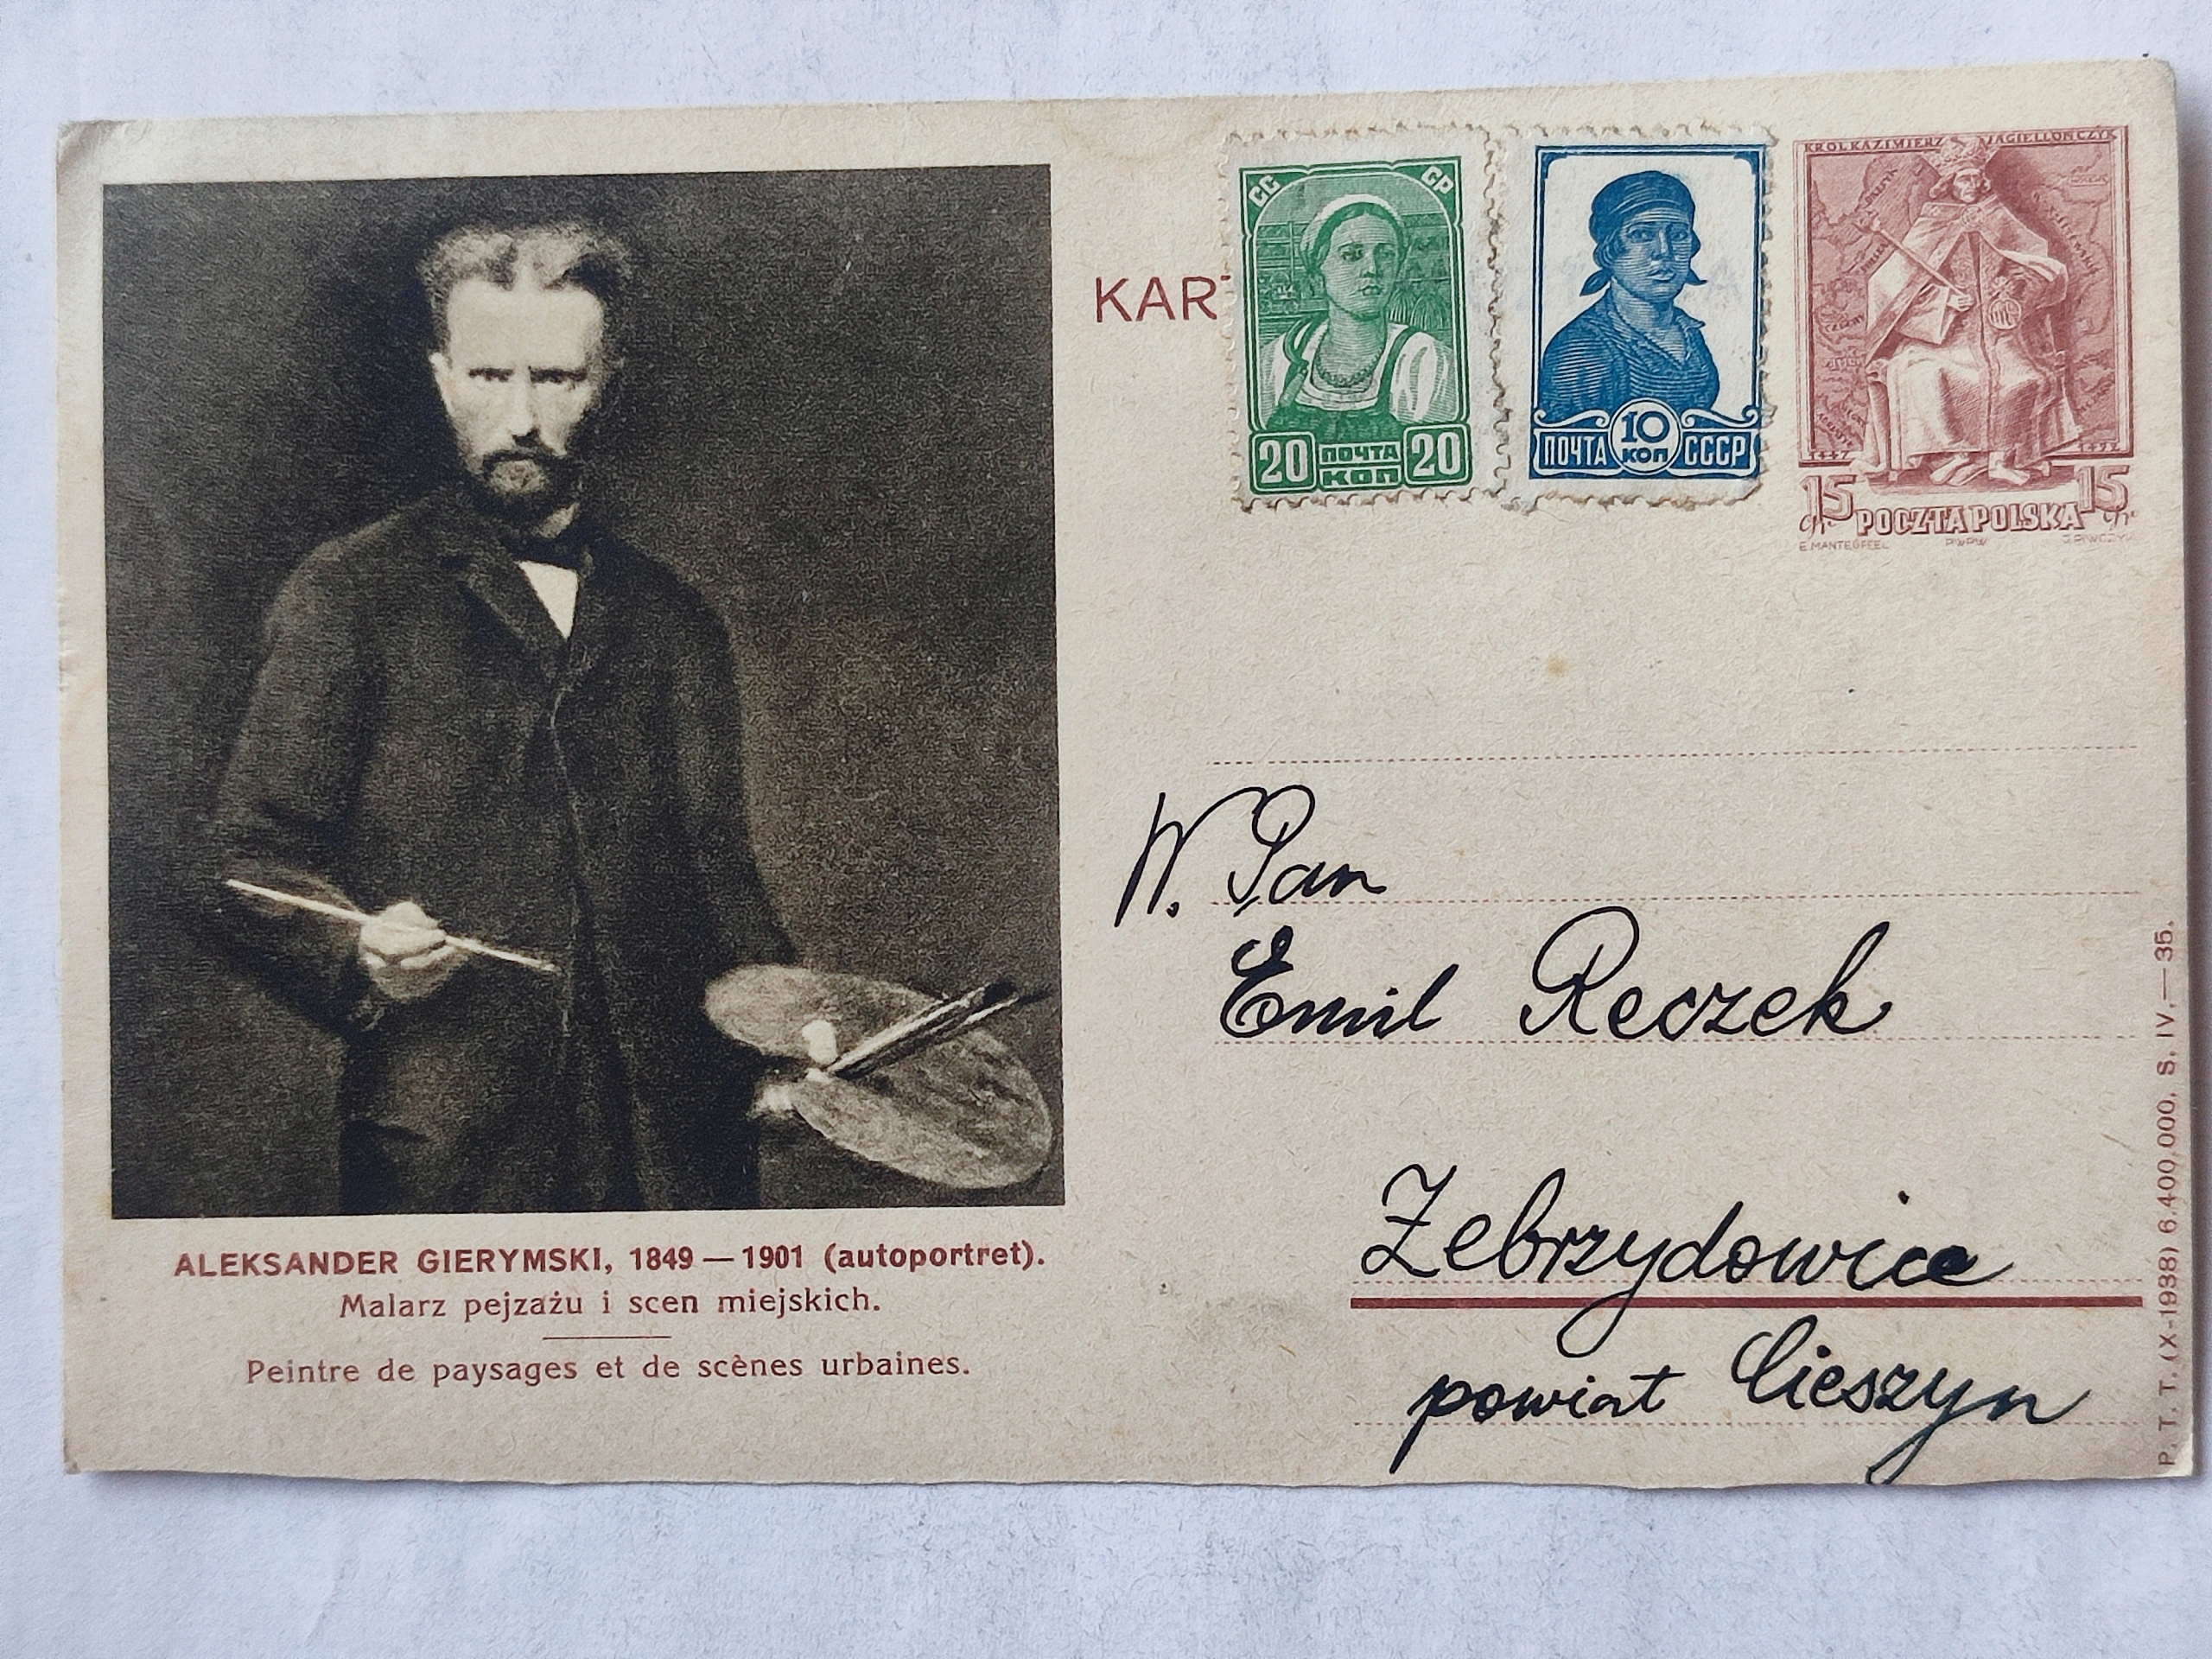 KAR
СС СР
20 ПОЧТА 20
КОП
10
КОП
ПОЧТА СССР
KRÓL KAZIMIERZ JAGIELLOŃCZYK
1447 1492
15 gr. POCZTA POLSKA 15 gr.
E. MANTEUFFEL PWPW
W. Pan
Emil Reczek
Zebrzydowice
powiat Cieszyn
ALEKSANDER GIERYMSKI, 1849 — 1901 (autoportret).
Malarz pejzażu i scen miejskich.
Peintre de paysages et de scènes urbaines.
P. T. T. (X-1938) 6.400.000. S. IV.—35.